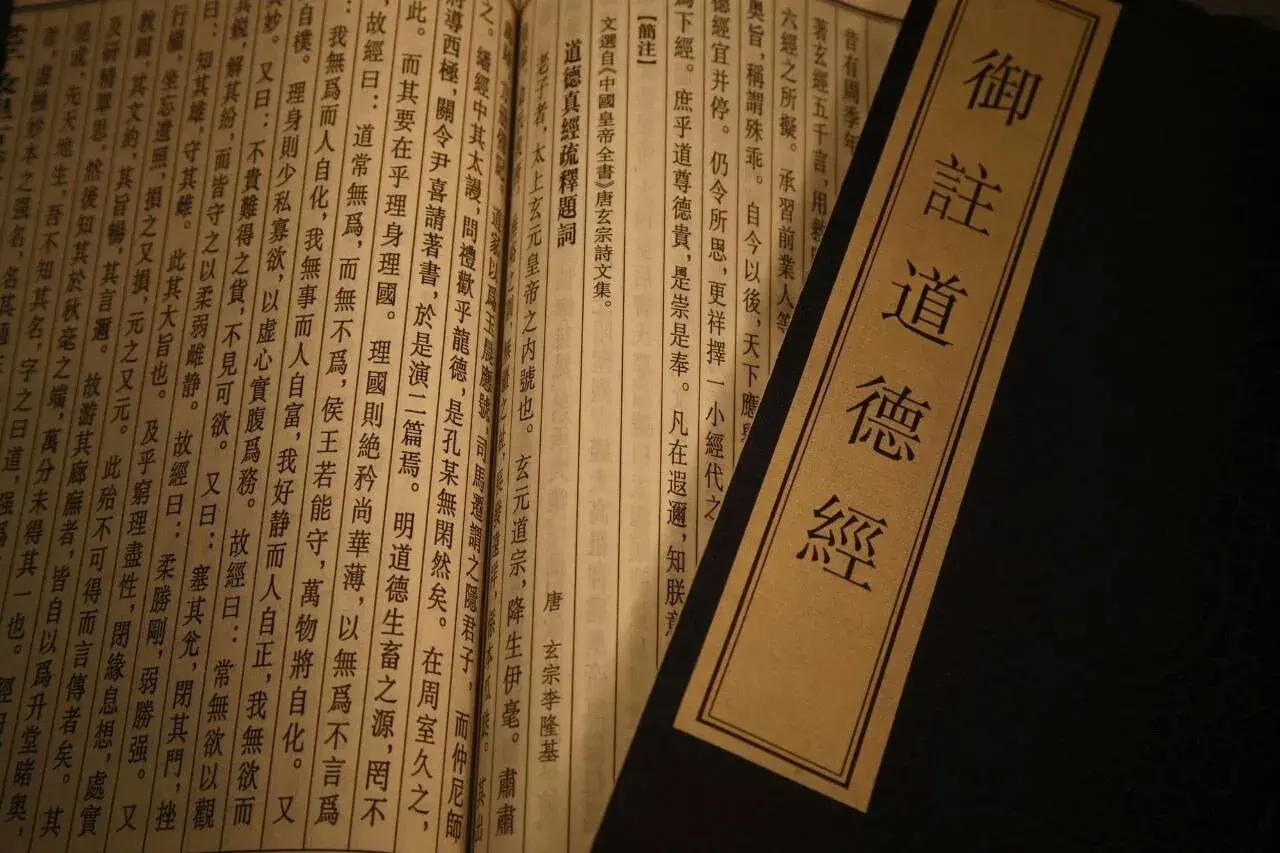 御註道德經
昔有周季年
著玄經五千言，用救
六經之所擬。承習前業人等
奥旨，稱謂殊乖。自今以後，天下應
德經宜并停。仍令所思，更祥擇一小經代之
爲下經。庶乎道尊德貴，是崇是奉。凡在遐邇，知朕意
【簡注】
文選自《中國皇帝全書》唐玄宗詩文集。
道德真經疏釋題詞
唐 玄宗李隆基
老子者，太上玄元皇帝之内號也。玄元道宗，降生伊毫。肅肅
道家以爲玉晨應號，司馬遷謂之隱君子，而仲尼師
之。繙經中其太謾，問禮歡乎龍德，是孔某無閑然矣。在周室久之，
將導西極，關令尹喜請著書，於是演二篇焉。明道德生畜之源，罔不
此。而其要在乎理身理國。理國則絶矜尚華薄，以無爲不言爲
，故經曰：道常無爲，而無不爲，侯王若能守，萬物將自化。又
：我無爲而人自化，我無事而人自富，我好静而人自正，我無欲而
自樸。理身則少私寡欲，以虚心實腹爲務。故經曰：常無欲以觀
其妙。又曰：不貴難得之貨，不見可欲。又曰：塞其兌，閉其門，挫
其鋭，解其紛，而皆守之以柔弱雌静。故經曰：柔勝剛，弱勝强。又
曰：知其雄，守其雌。此其大旨也。及乎窮理盡性，閉緣息想，處實
行權，坐忘遺照，損之又損，元之又元。此殆不可得而言傳者矣。其
教圓，其文約，其旨暢，其言邇。故游其廊廡者，皆自以爲升堂睹奥，
及研精覃思，然後知其於秋毫之端，萬分未得其一也。
混成，先天地生，吾不知其名，字之曰道，强爲
虚極妙本之强名，名其